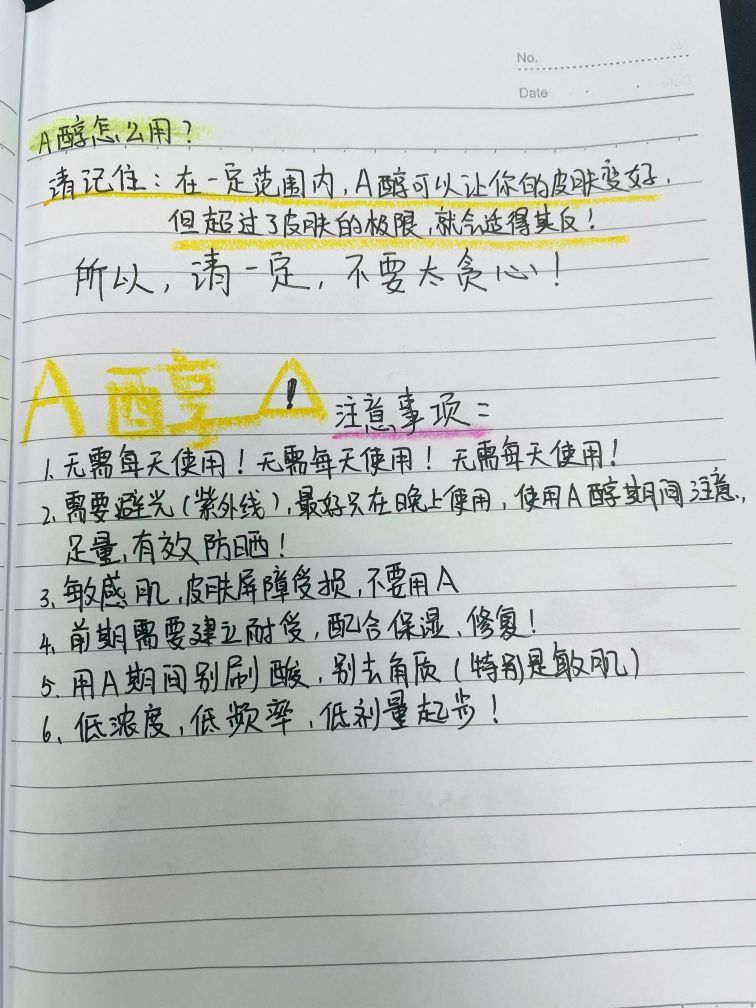 No.
Date
A醇怎么用？
请记住：在一定范围内，A醇可以让你的皮肤变好，
但超过了皮肤的极限，就会适得其反！
所以，请一定，不要太贪心！
A醇 ! 注意事项：
1、无需每天使用！无需每天使用！无需每天使用！
2、需要避光（紫外线），最好只在晚上使用，使用A醇期间注意，
足量，有效防晒！
3、敏感肌，皮肤屏障受损，不要用A
4、前期需要建立耐受，配合保湿、修复！
5、用A期间别刷酸，别去角质（特别是敏肌）
6、低浓度，低频率，低剂量起步！